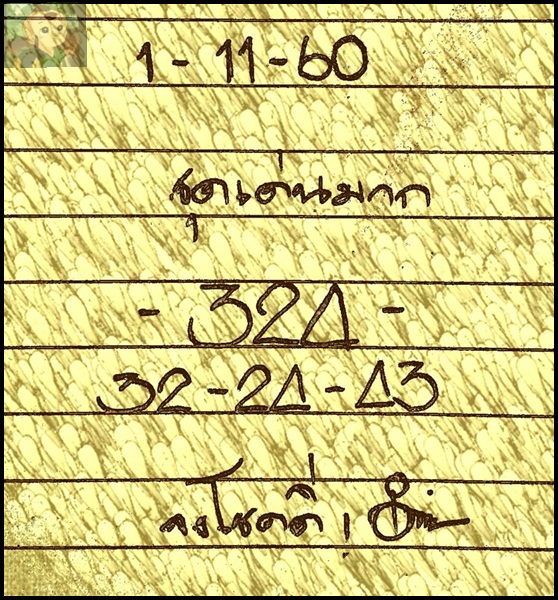 1 - 11 - 60
ชุดเด่นมาก
- 32Δ -
32 - 2Δ - Δ3
จงโชคดี